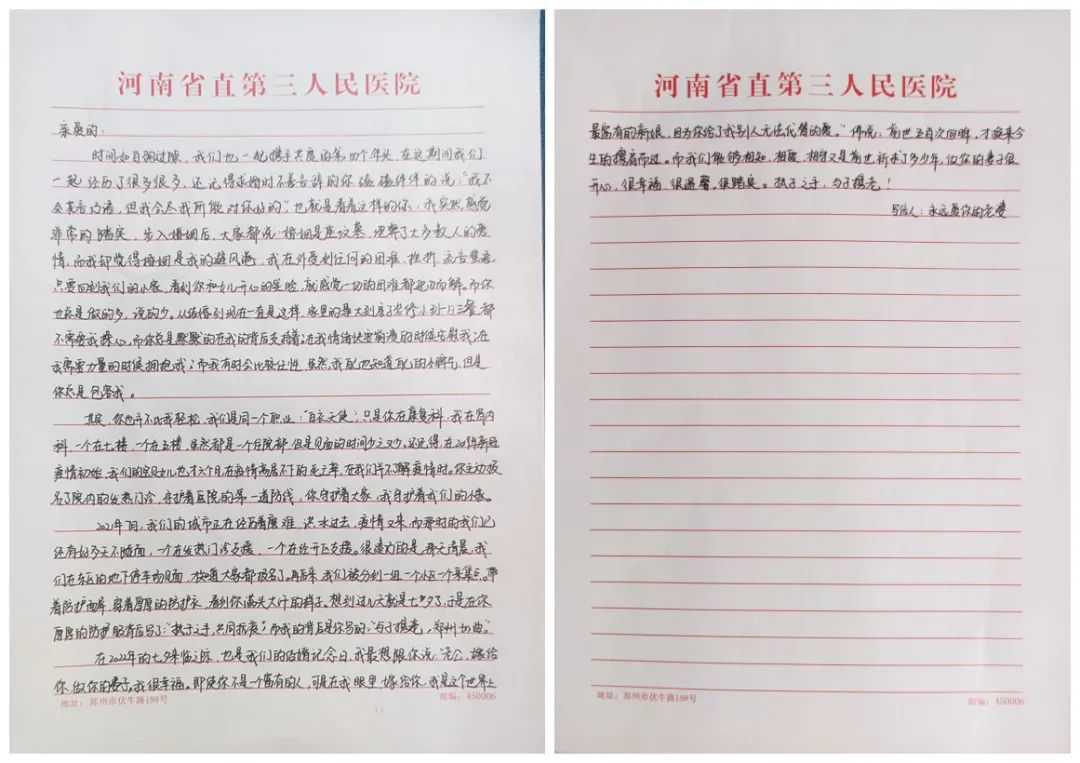 河南省直第三人民医院
亲爱的：
时间如白驹过隙，我们也一起携手共度的第四个年头，在这期间我们
一起经历了很多很多，还记得求婚时不善言辞的你磕磕绊绊的说："我不
会花言巧语，但我会尽我所能对你好的"，也就是看着这样的你，我突然感觉
非常的踏实，步入婚姻后，大家都说：婚姻是座坟墓，埋葬了大多数人的爱
情，而我却觉得婚姻是我的避风港，我在外受到任何的困难、挫折、流言蜚语，
只要回到我们的小家，看到你和女儿开心的笑脸，就感觉一切的困难都迎刃而解。而你
也总是做的多，说的少。从结婚到现在一直是这样，家里的事大到房子装修小到一日三餐都
不需要我操心，而你总是默默的在我的背后支持着；在我情绪快要崩溃的时候安慰我；在
我需要力量的时候拥抱我；而我有时会比较任性，虽然，我自己也知道自己的小脾气，但是
你总是包容我。
其实，你也并不比我轻松，我们是同一个职业："白衣天使"；只是你在康复科，我在肾内
科，一个在七楼，一个在五楼，虽然都是一个住院部，但是见面的时间少之又少，还记得，在2019年新冠
疫情初始，我们的宝贝女儿也才六个月，在疫情高居不下的态势，在我们并不了解疫情时。你主动报
名了院内的发热门诊，守护着医院的第一道防线，你守护着大家，我守护着我们的小家。
2021年7月，我们的城市正在经历着磨难，洪水过去，疫情又来，而那时的我们已
还有好多天不曾面，一个在发热门诊支援，一个在经开区支援。很凑巧的是，那天清晨，我
们在东区的地下停车场见面，才知道大家都报名了。再后来，我们被分到一组一个小区一个采集点。带
着防护面屏，穿着厚厚的防护衣，看到你满头大汗的样子。想到过几天就是七夕了，于是在你
厚厚的防护服背后写了："执子之手，共同抗疫"；而我的背后是你写的："与子携老，郑州加油"。
在2022年的七夕来临之际，也是我们的结婚纪念日，我最想跟你说："老公，嫁给
你，做你的妻子，我很幸福。即使你不是一个富有的人，可是在我眼里，嫁给你，我是这个世界上
地址：郑州市伏牛路198号
邮编：450006
河南省直第三人民医院
最富有的新娘，因为你给了我别人无法代替的爱。"佛说：前世五百次回眸，才换来今
生的擦肩而过。而我们能够相知、相爱、相守又是前世祈求了多少年，做你的妻子很
开心，很幸福，很温馨，很踏实。执子之手，与子携老！
写信人：永远爱你的老婆
地址：郑州市伏牛路198号
邮编：450006